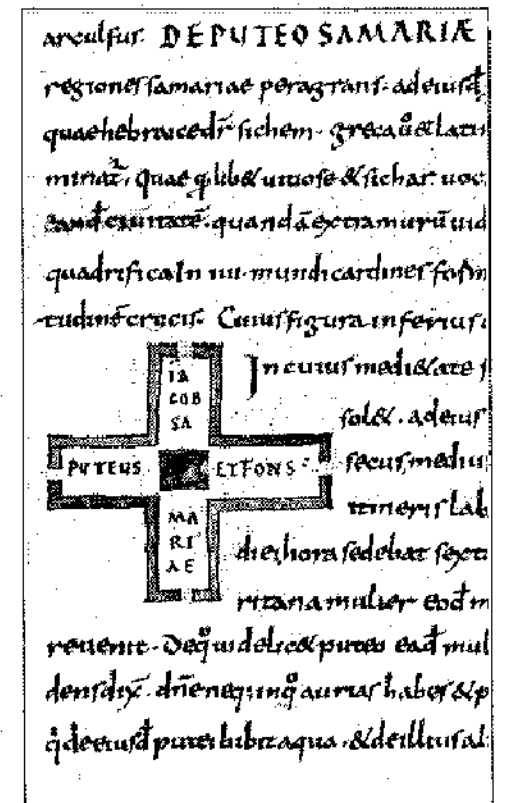 arculfus· DE PUTEO SAMARIÆ
regiones samariae peragrans· ad eiusđ
quae hebraice dr̄ sichem· greca ů & latin
minat̄· quae q lib& uitiose & sichar uoc
ciuitatē· quandā extra murū uid
quadrifica In iiii· mundi cardines
tudinē crucis· Cuius figura inferius
IA
COB
SA
PVTEUS
ETFONS
MA
RI
AE
In cuius medi&ate
fol&· ad eius
secus mediu
itineris lab
die hora sedebat sexta
ritana mulier eođ m
reuenit· De q̊ uidelic& puteo eađ mul
dens dix̄· dn̄e neq; in q̊ habes & p
q̊ de eiusđ putei bibit aqua· & de illius al